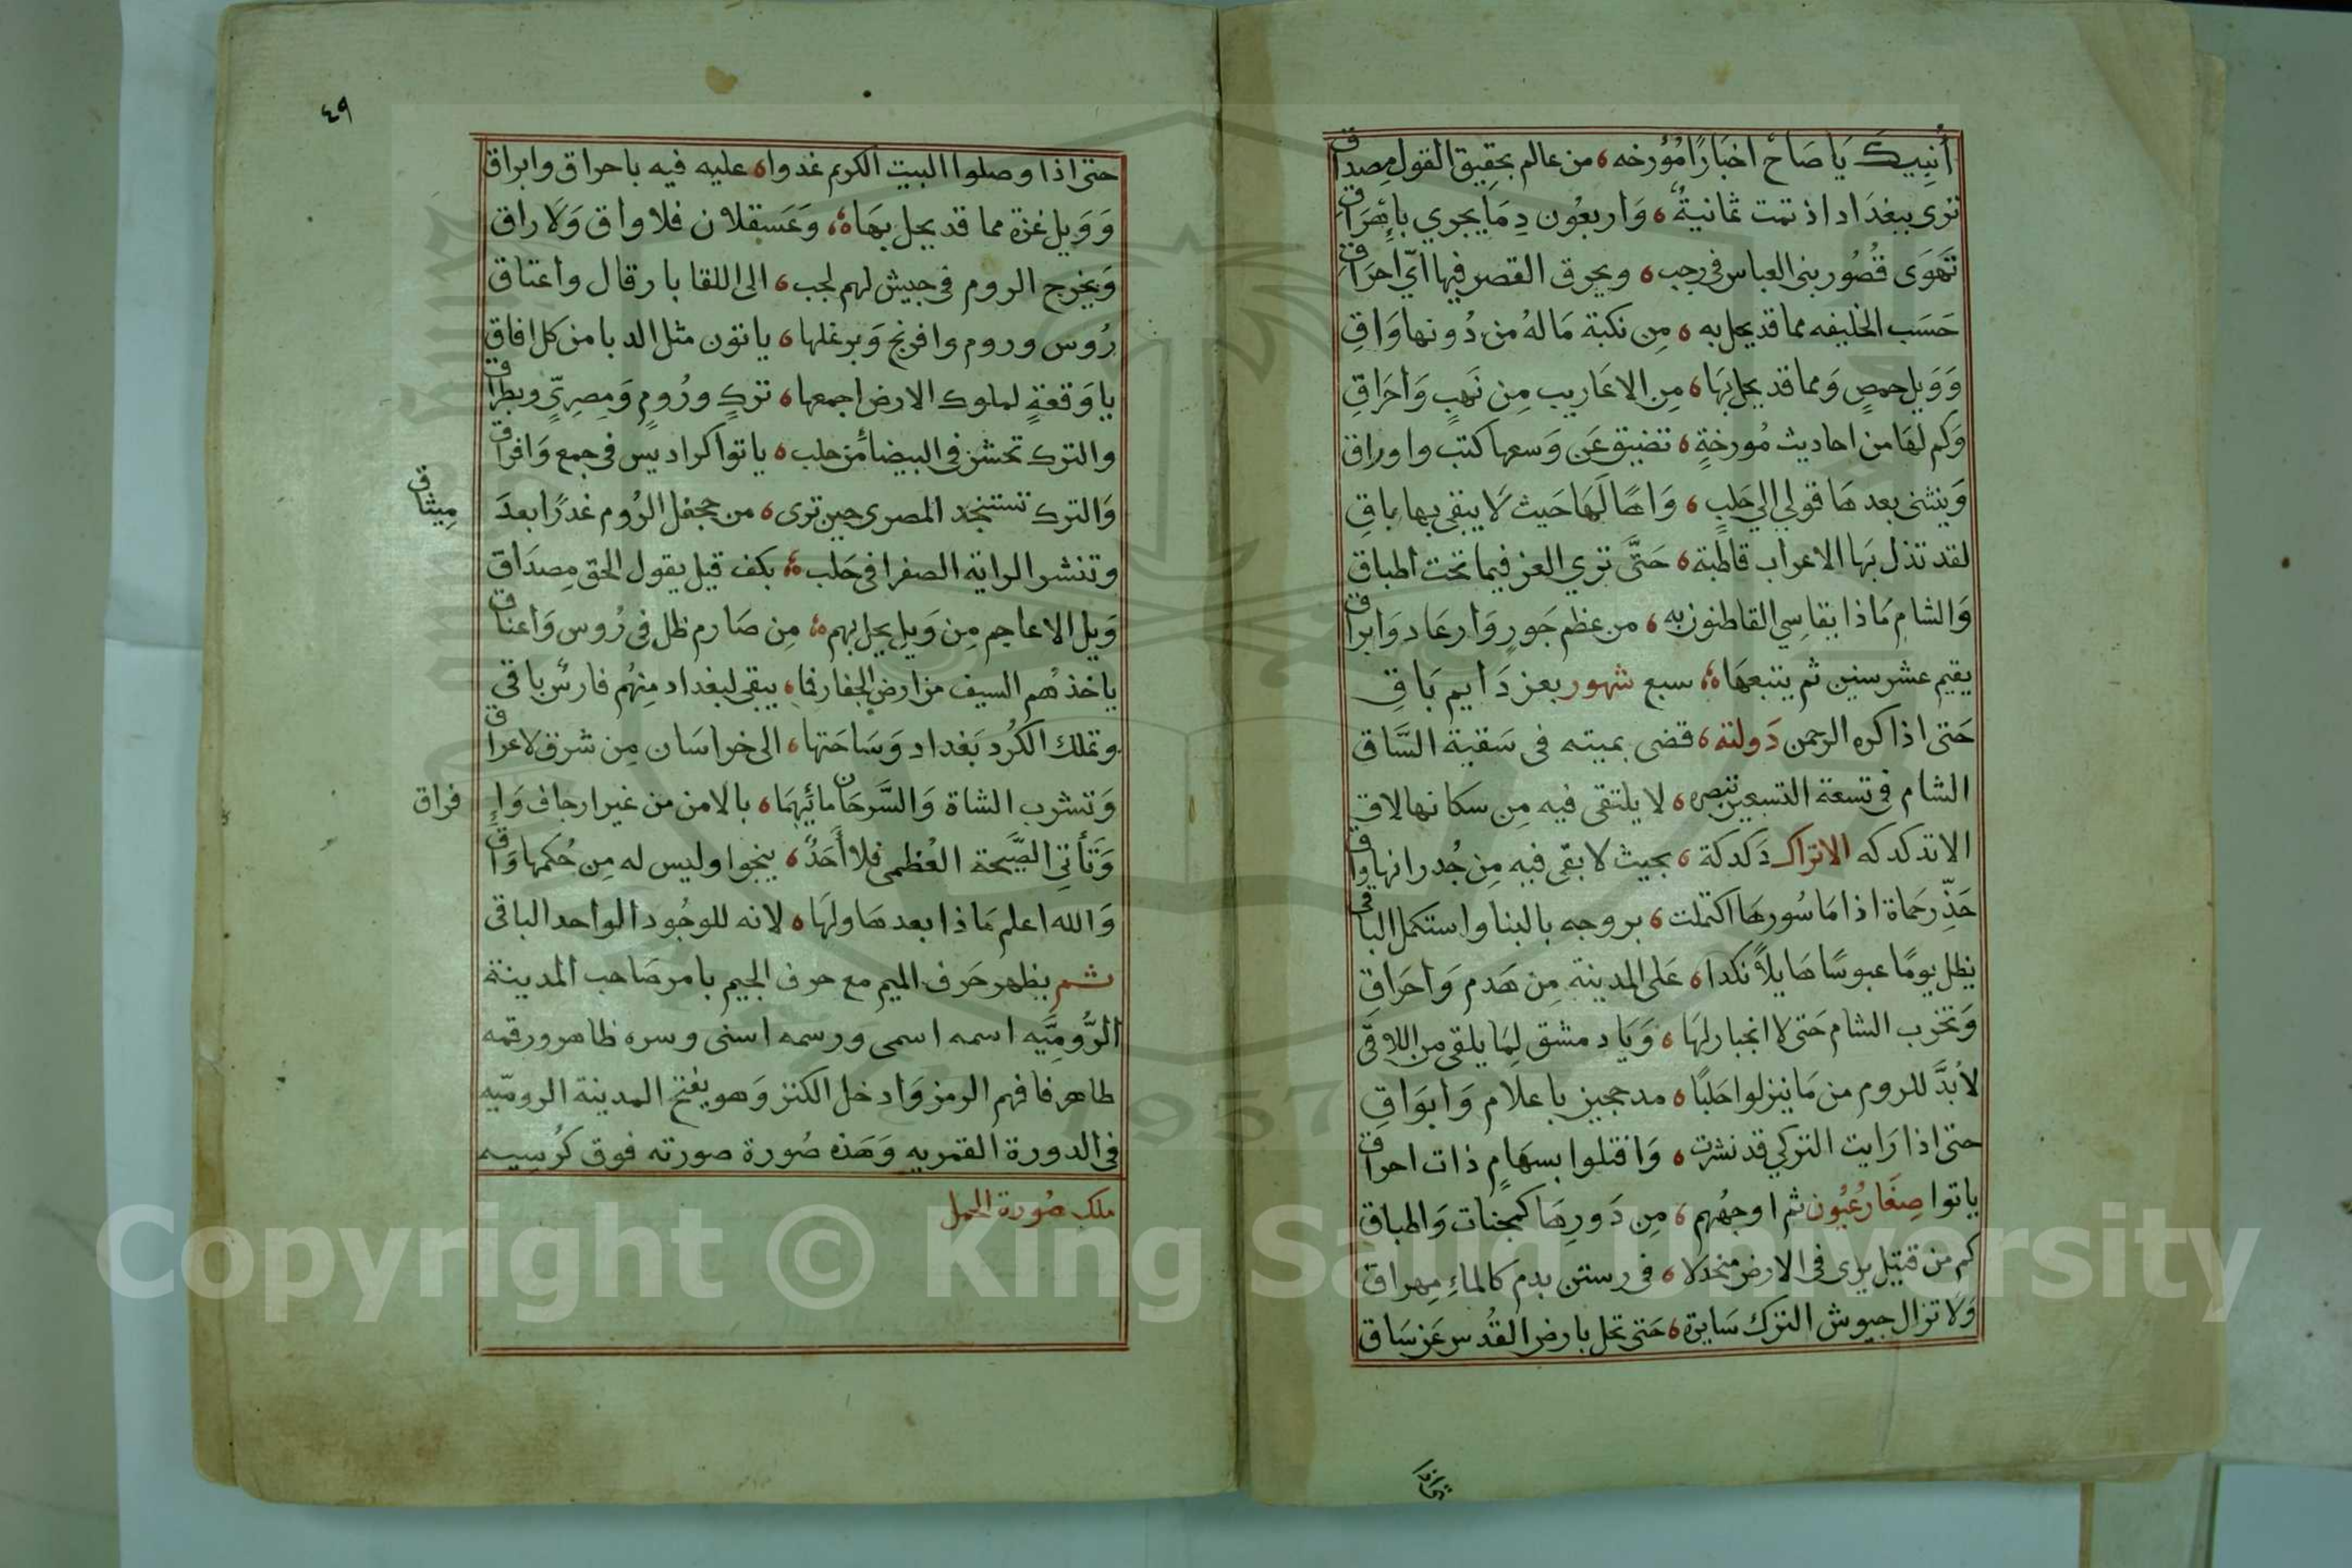 أنبيك يَا صَاحْ اخبَارًا مُؤرخه ، من عالم بحقيق القول مِصداق
ترى ببغدَاد اذ تمت ثمانيةٌ ، وَاربعُون دِمَا يجري بإهرَاقِ
تَهوَى قصُور بنى العباس فى رجب ، ويحرق القصر فيها ايّ احرَاقِ
حَسَب الخليفه مما قد يحل به ، مِن نكبة مَا لهُ من دُونها وَاقِ
وَوَيل حمصٍ وَمما قد يحل بهَا ، مِن الاعَاريب مِن نَهبٍ وَاحرَاقِ
وَكم لهَا من احاديث مُورخةٍ ، تضيق عَن وَسعها كتب واوراق
وَينثنى بعدهَا قولي الي حَلبٍ ، وَاهًا لَهَا حَيث لَا يبقى بها باقِ
لقد تذل بهَا الاعراب قاطبة ، حَتَّى تري العز فيما تحت اطباق
وَالشام مَاذا يقاسِي القاطنون به ، من عظم جَورٍ وَارعَاد وَابراق
يقيم عشر سنين ثم يتبعهَا ، سبع شهور بعز دَايم بَاقِ
حَتى اذا كره الرحمن دَولته ، قضى بميته فى سَقبة السَّاق
الشام فى تسعة التسعين تبصره ، لا يلتقى فيه مِن سكانها لاق
الا تدكدكه الاتراك دَكدكة ، بحيث لا بقى فيه مِن جُدرانها واق
حَذِّر حَماة اذا مَا سُورهَا اكتملت ، بروجه بالبنا واستكمل الباقى
يظل يومًا عبوسًا هَايلاً نكدا ، عَلى المدينة مِن هَدم وَاحرَاقِ
وَتخرب الشام حَتى لا انجبار لهَا ، وَيَا دمشق لِمَا يلقى من اللاقى
لأبدَّ للروم من مَا ينزلوا حَلبًا ، مدججين باعلام وَابوَاقِ
حتى اذا رَايت التركي قد نشرت ، وَاقتلوا بسهَامٍ ذات احراق
ياتوا صِغَار عُيُون ثم اوجهُهم ، مِن دَورِهَا كمجنات وَاطباق
كم من قتيل يرى فى الارض منخدلا ، فى رستن بدم كالماءِ مِهراق
وَلا تزال جيوش الترك سَايرة ، حَتى تحل بارض القُدس عَن سَاق
حتى اذا
٤٩
حتى اذا وصلوا البيت الكريم غدوا ، عليه فيه باحراق وابراق
وَوَيل غزة مما قد يحل بهَا ، وَعَسقلان فلا واق وَلَا راق
وَيخرج الروم فى جيش لهم لجب ، الى اللقا بارقال واعتاق
رُوس وروم وافرنج وَبرغلها ، ياتون مثل الدبا من كل افاق
يا وَقعةٍ لملوك الارض اجمعها ، تركٍ ورُومٍ وَمِصرِيٍّ وبطراق
والترك تحشر فى البيضا من حلب ، ياتوا كراديس فى جمع وَافراق
وَالترك تستنجد المصرى حين ترى ، من جحفل الرُوم غدرًا بعدَ
مِيثاق
وتنشر الراية الصفرا فى حَلب ، بكف قيل يقول الحق مِصدَاق
وَيل الاعاجم مِن وَيل يحل بهم ، مِن صَارم ظل فى رُوس وَاعناق
ياخذهُم السيف من ارض الجفار فما ، يبقى لبغداد مِنهُم فارسٌ باقي
وتملك الكُرد بَغداد وَسَاحَتها ، الى خراسَان مِن شرق لاعراق
وَتشرب الشاة وَالسَّرحَان مائَيهمَا ، بالامن من غير ارجاف وَاِ
فراق
وَتَأتِى الصَّيحة العُظمى فلا أَحَدٌ ، ينجوا وليس له مِن حُكمها وَاق
وَالله اعلم مَاذا بعدهَا ولهَا ، لانه للوجُود الواحد الباقى
ثم يظهر حَرف الميم مع حرف الجيم بامر صَاحب المدينة
الرُّومِيَّه اسمه اسمى ورسمه اسنى وسره ظاهر ورقمه
طاهر فافهم الرمز وَادخل الكنز وَهو يفتح المدينة الروميّه
فى الدورة القمريه وَهَذه صُورة صورته فوق كرُسيه
ملك صُورة الحمل
Copyright © King Saud University
1957